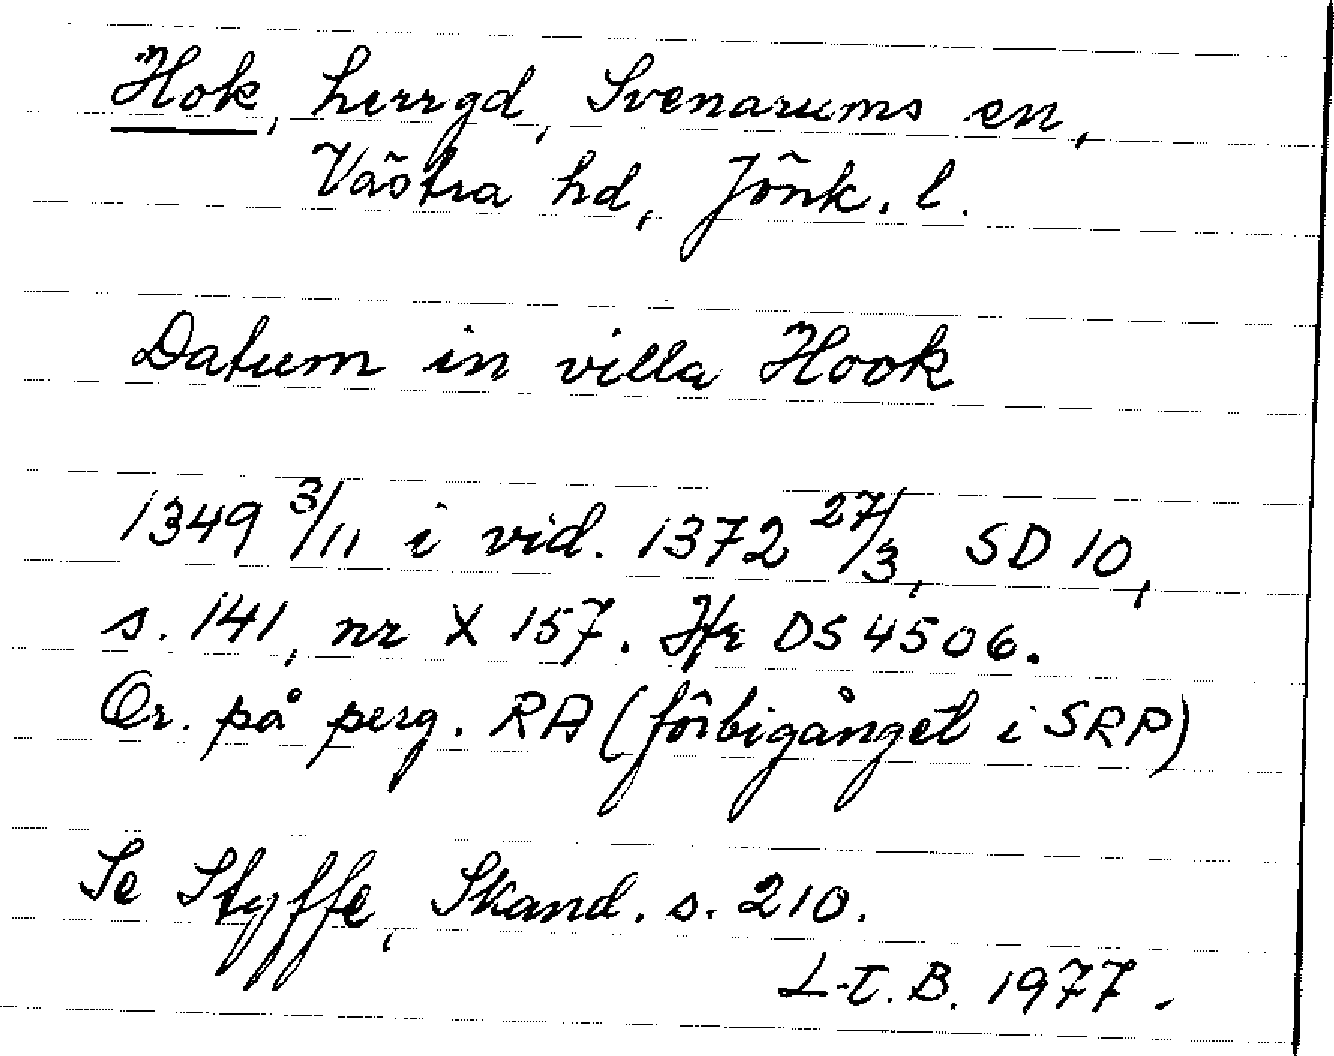 Hok, herrgd, Svenarums sn,
Västra hd, Jönk. l.
Datum in villa Hook
1349 3/11 i vid. 1372 27/3, SD 10,
s. 141, nr X 157. Jfr DS 4506.
Or. på perg. RA (förbigånget i SRP)
Se Styffe, Skand. s. 210.
L-E. B. 1977.